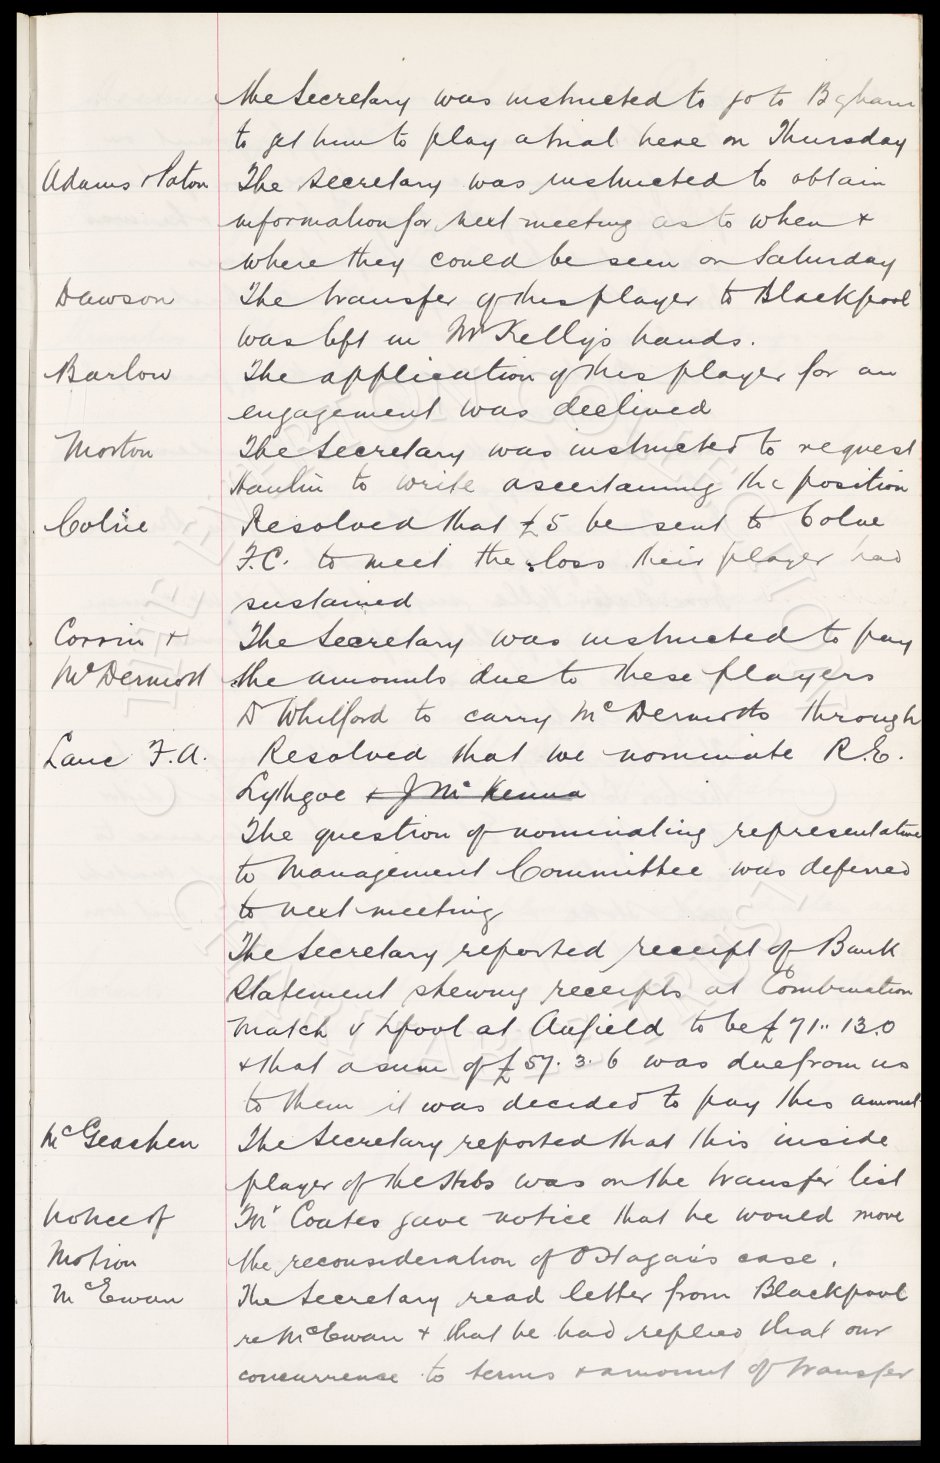 the Secretary was instructed to go to B'gham
to get him to play a trial here on Thursday
Adams & Paton The Secretary was instructed to obtain
information for next meeting as to when &
where they could be seen on Saturday
Dawson The transfer of this player to Blackpool
was left in Mr Kelly's hands.
Barlow The application of this player for an
engagement was declined
Morton The Secretary was instructed to request
Hamlin to write ascertaining the position
Colne Resolved that £5 be sent to Colne
F.C. to meet the loss their player had
sustained
Corrin & The Secretary was instructed to pay
McDermott the amounts due to these players
D Whitford to carry McDermotts through
Lanc F.A. Resolved that we nominate R.E.
Lythgoe & J McKenna
The question of nominating representative
to Management Committee was deferred
to next meeting
The Secretary reported receipt of Bank
Statement shewing receipts at Combination
Match v L'pool at Anfield to be £71..13.0
& that a sum of £57.3.6 was due from us
to them it was decided to pay this amount
McGeachen The Secretary reported that this inside
player of the Hibs was on the transfer list
Notice of Mr Coates gave notice that he would move
Motion the reconsideration of O'Hagan's case.
McEwan The Secretary read letter from Blackpool
re McEwan & that he had replied that our
concurrence to terms & amount of transfer